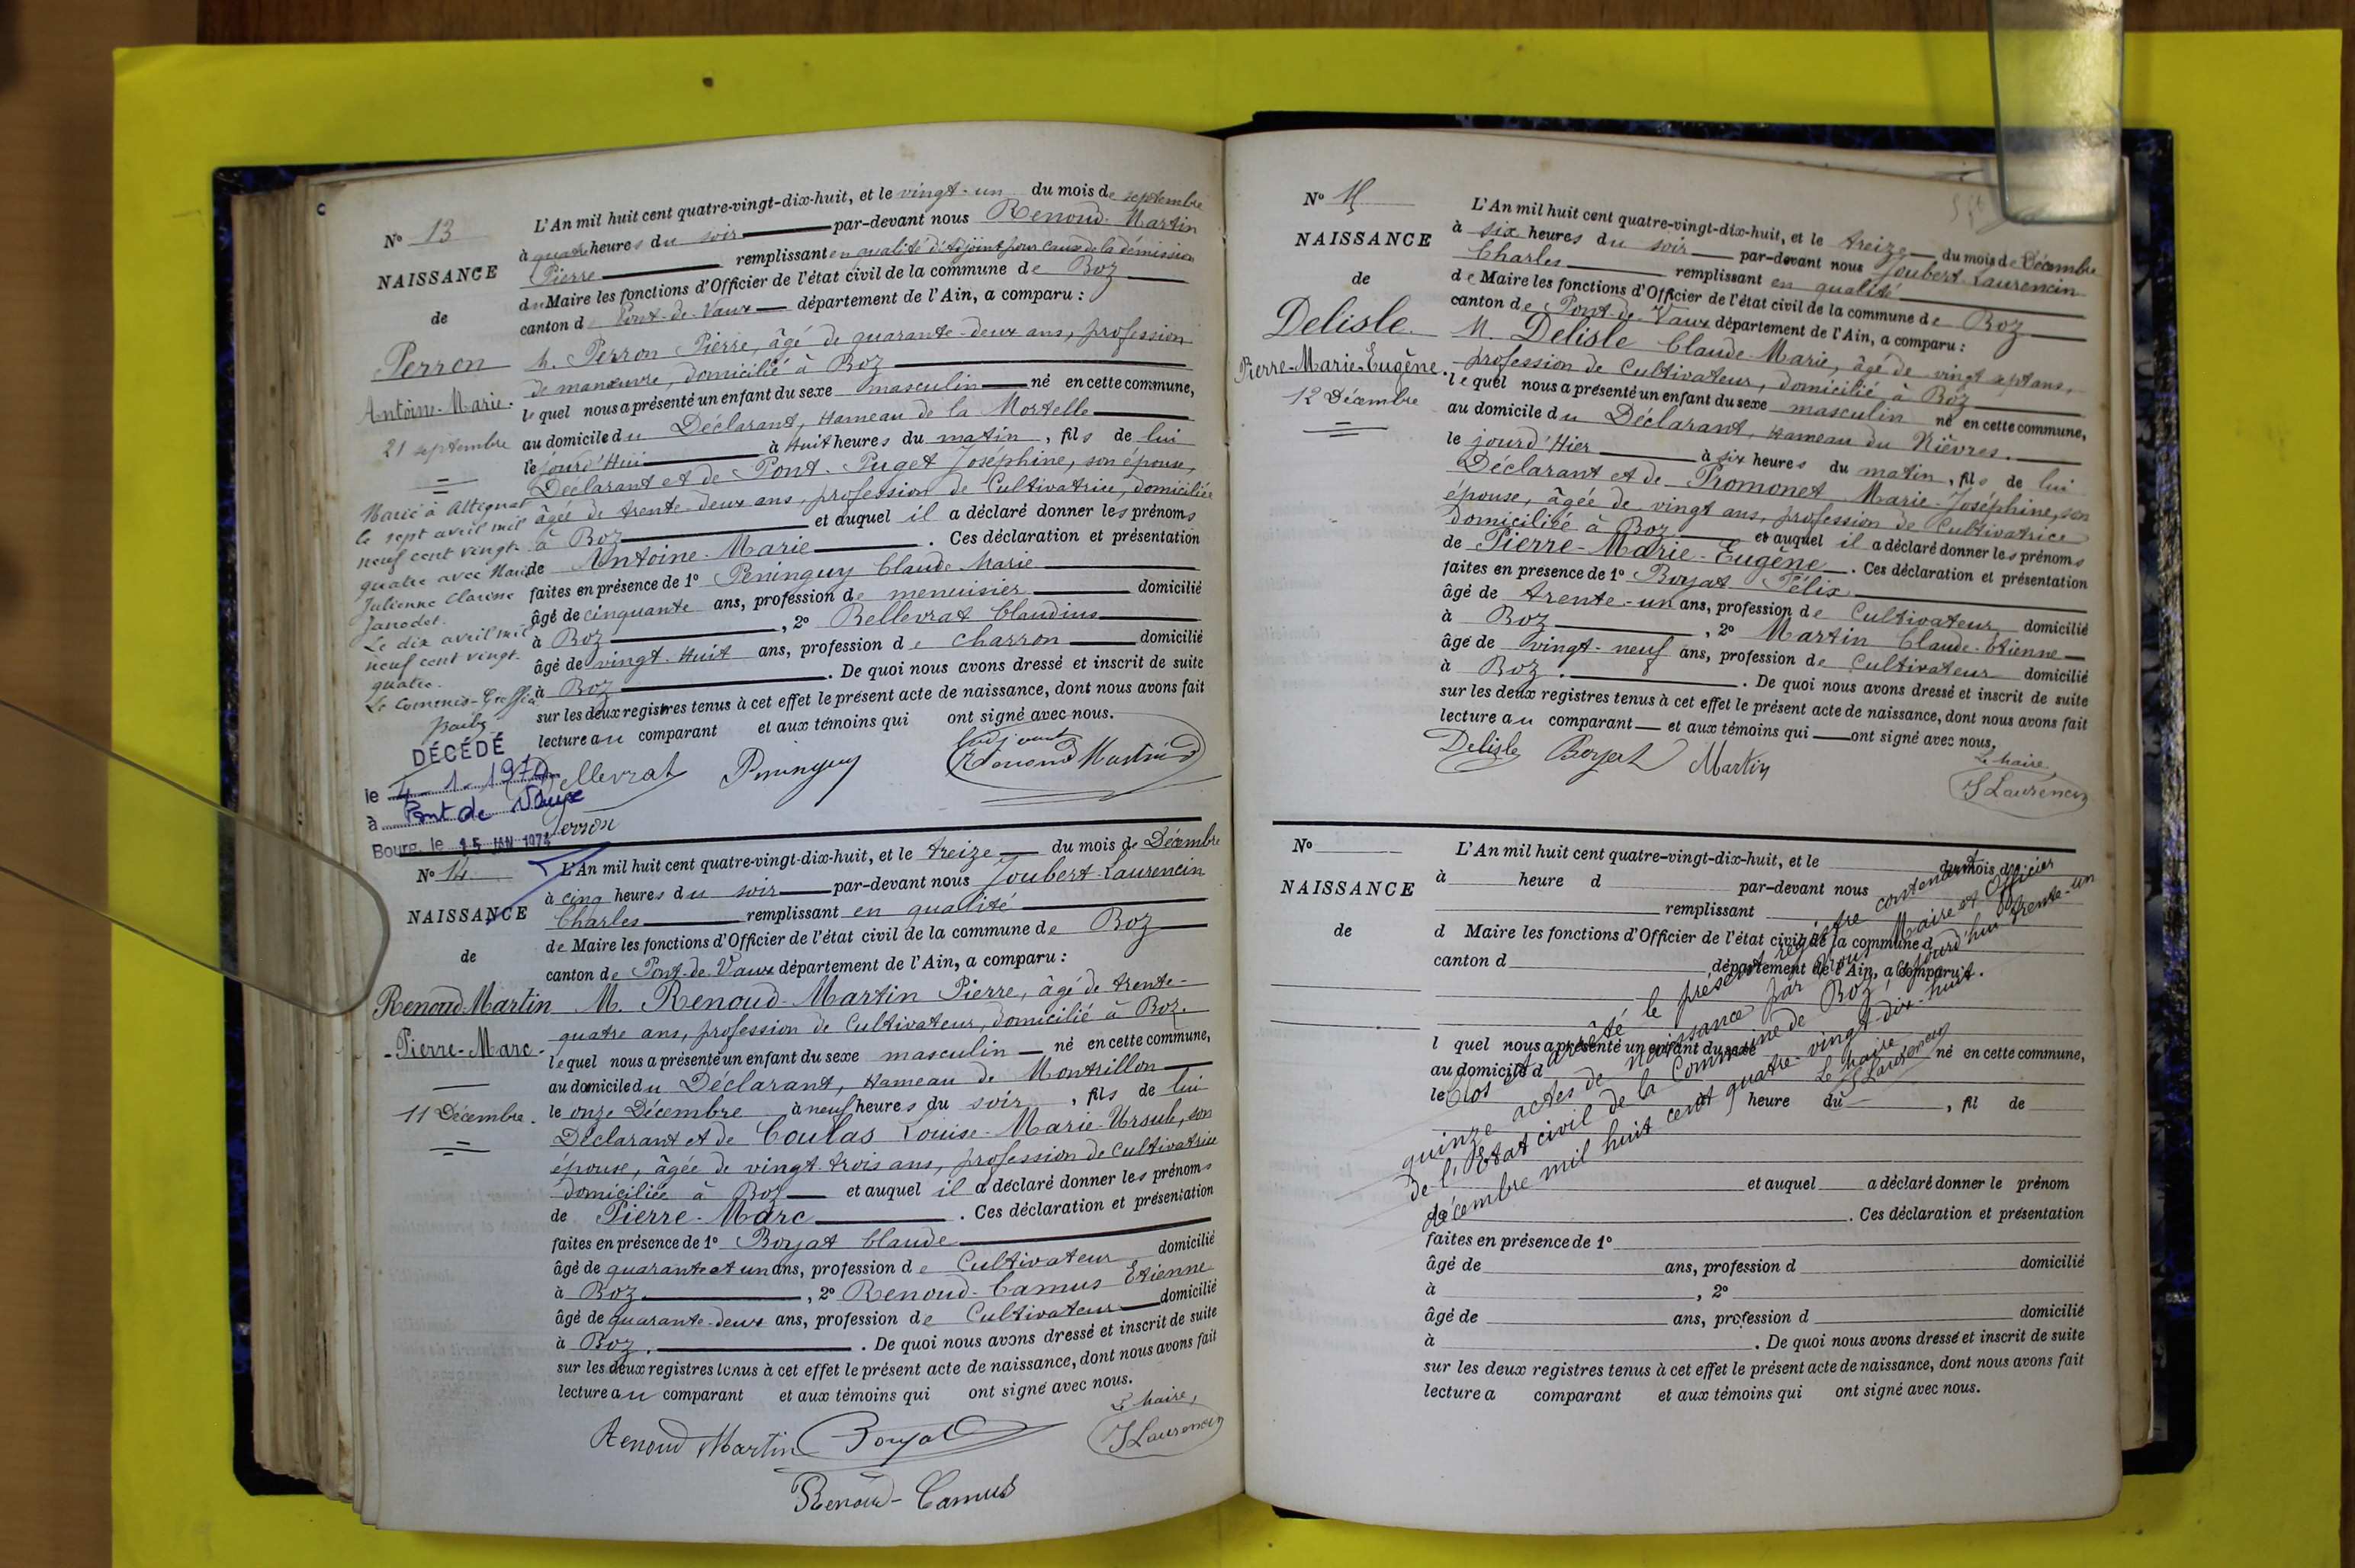 N° 13
NAISSANCE
de
Perron
Antoine-Marie.
21 septembre
Marié à Attignat
le sept avril mil
neuf cent vingt-
quatre avec Marie
Julienne Clarisse
Janodet.
Le dix avril mil
neuf cent vingt-
quatre.
Le Commis-Greffier
DÉCÉDÉ
le 4-1-1970
à Pont de Vaux
Bourg, le 15 JAN 197
L'An mil huit cent quatre-vingt-dix-huit, et le vingt-un du mois de septembre
à quatre heures du soir par-devant nous Renoud-Martin
Pierre remplissant en qualité d'Adjoint pour cause de la démission
du Maire les fonctions d'Officier de l'état civil de la commune de Boz
canton de Pont-de-Vaux département de l'Ain, a comparu :
M. Perron Pierre, âgé de quarante-deux ans, profession
de manœuvre, domicilié à Boz
lequel nous a présenté un enfant du sexe masculin né en cette commune,
au domicile du Déclarant, Hameau de la Mortelle
le jourd'Hui à Huit heures du matin, fils de lui
Déclarant et de Pont-Puget Joséphine, son épouse,
âgée de trente-deux ans, profession de Cultivatrice, domiciliée
à Boz et auquel il a déclaré donner les prénoms
de Antoine-Marie. Ces déclaration et présentation
faites en présence de 1° Peninguy Claude Marie
âgé de cinquante ans, profession de menuisier domicilié
à Boz, 2° Bellevrat Claudius
âgé de vingt-Huit ans, profession de charron domicilié
à Boz. De quoi nous avons dressé et inscrit de suite
sur les deux registres tenus à cet effet le présent acte de naissance, dont nous avons fait
lecture au comparant et aux témoins qui ont signé avec nous.
L'adjoint
Bellevrat Peninguy Renoud Martin
Perron
N° 14
NAISSANCE
de
Renoud-Martin
-Pierre-Marc-
11 Décembre.
L'An mil huit cent quatre-vingt-dix-huit, et le treize du mois de Décembre
à cinq heures du soir par-devant nous Joubert-Laurencin
Charles remplissant en qualité
de Maire les fonctions d'Officier de l'état civil de la commune de Boz
canton de Pont-de-Vaux département de l'Ain, a comparu :
M. Renoud-Martin Pierre, âgé de trente-
quatre ans, profession de Cultivateur, domicilié à Boz.
lequel nous a présenté un enfant du sexe masculin né en cette commune,
au domicile du Déclarant, Hameau de Montrillon
le onze Décembre à neuf heures du soir, fils de lui
Déclarant et de Coulas Louise-Marie-Ursule, son
épouse, âgée de vingt-trois ans, profession de Cultivatrice
domiciliée à Boz et auquel il a déclaré donner les prénoms
de Pierre-Marc. Ces déclaration et présentation
faites en présence de 1° Boyat Claude
âgé de quarante et un ans, profession de Cultivateur domicilié
à Boz, 2° Renoud-Camus Etienne
âgé de quarante-deux ans, profession de Cultivateur domicilié
à Boz. De quoi nous avons dressé et inscrit de suite
sur les deux registres tenus à cet effet le présent acte de naissance, dont nous avons fait
lecture au comparant et aux témoins qui ont signé avec nous.
Le Maire,
Renoud Martin Boyat J Laurencin
Renoud-Camus
N° 15
NAISSANCE
de
Delisle
Pierre-Marie-Eugène.
12 Décembre
L'An mil huit cent quatre-vingt-dix-huit, et le treize du mois de Décembre
à six heures du soir par-devant nous Joubert-Laurencin
Charles remplissant en qualité
de Maire les fonctions d'Officier de l'état civil de la commune de Boz
canton de Pont-de-Vaux département de l'Ain, a comparu :
M. Delisle Claude-Marie, âgé de vingt sept ans,
profession de Cultivateur, domicilié à Boz
lequel nous a présenté un enfant du sexe masculin né en cette commune,
au domicile du Déclarant, Hameau du Nièvres.
le jourd'Hier à six heures du matin, fils de lui
Déclarant et de Promonet Marie-Joséphine, son
épouse, âgée de vingt ans, profession de Cultivatrice
domiciliée à Boz et auquel il a déclaré donner les prénoms
de Pierre-Marie-Eugène. Ces déclaration et présentation
faites en présence de 1° Boyat Félix
âgé de trente-un ans, profession de Cultivateur domicilié
à Boz, 2° Martin Claude-Etienne
âgé de vingt-neuf ans, profession de Cultivateur domicilié
à Boz. De quoi nous avons dressé et inscrit de suite
sur les deux registres tenus à cet effet le présent acte de naissance, dont nous avons fait
lecture au comparant et aux témoins qui ont signé avec nous.
Le Maire,
Delisle Boyat Martin J Laurencin
N°
NAISSANCE
de
L'An mil huit cent quatre-vingt-dix-huit, et le du mois de
à heure d par-devant nous
remplissant
d Maire les fonctions d'Officier de l'état civil de la commune d
canton d département de l'Ain, a comparu :
l quel nous a présenté un enfant du sexe né en cette commune,
au domicile d
le à heure du, fil de
et auquel a déclaré donner le prénom
de. Ces déclaration et présentation
faites en présence de 1°
âgé de ans, profession d domicilié
à, 2°
âgé de ans, profession d domicilié
à. De quoi nous avons dressé et inscrit de suite
sur les deux registres tenus à cet effet le présent acte de naissance, dont nous avons fait
lecture a comparant et aux témoins qui ont signé avec nous.
Clos et arrêté le présent registre contenant
quinze actes de naissance par Nous Maire et Officier
de l'Etat civil de la Commune de Boz, aujourd'hui trente-un
décembre mil huit cent quatre-vingt-dix-huit.
Le Maire
J Laurencin